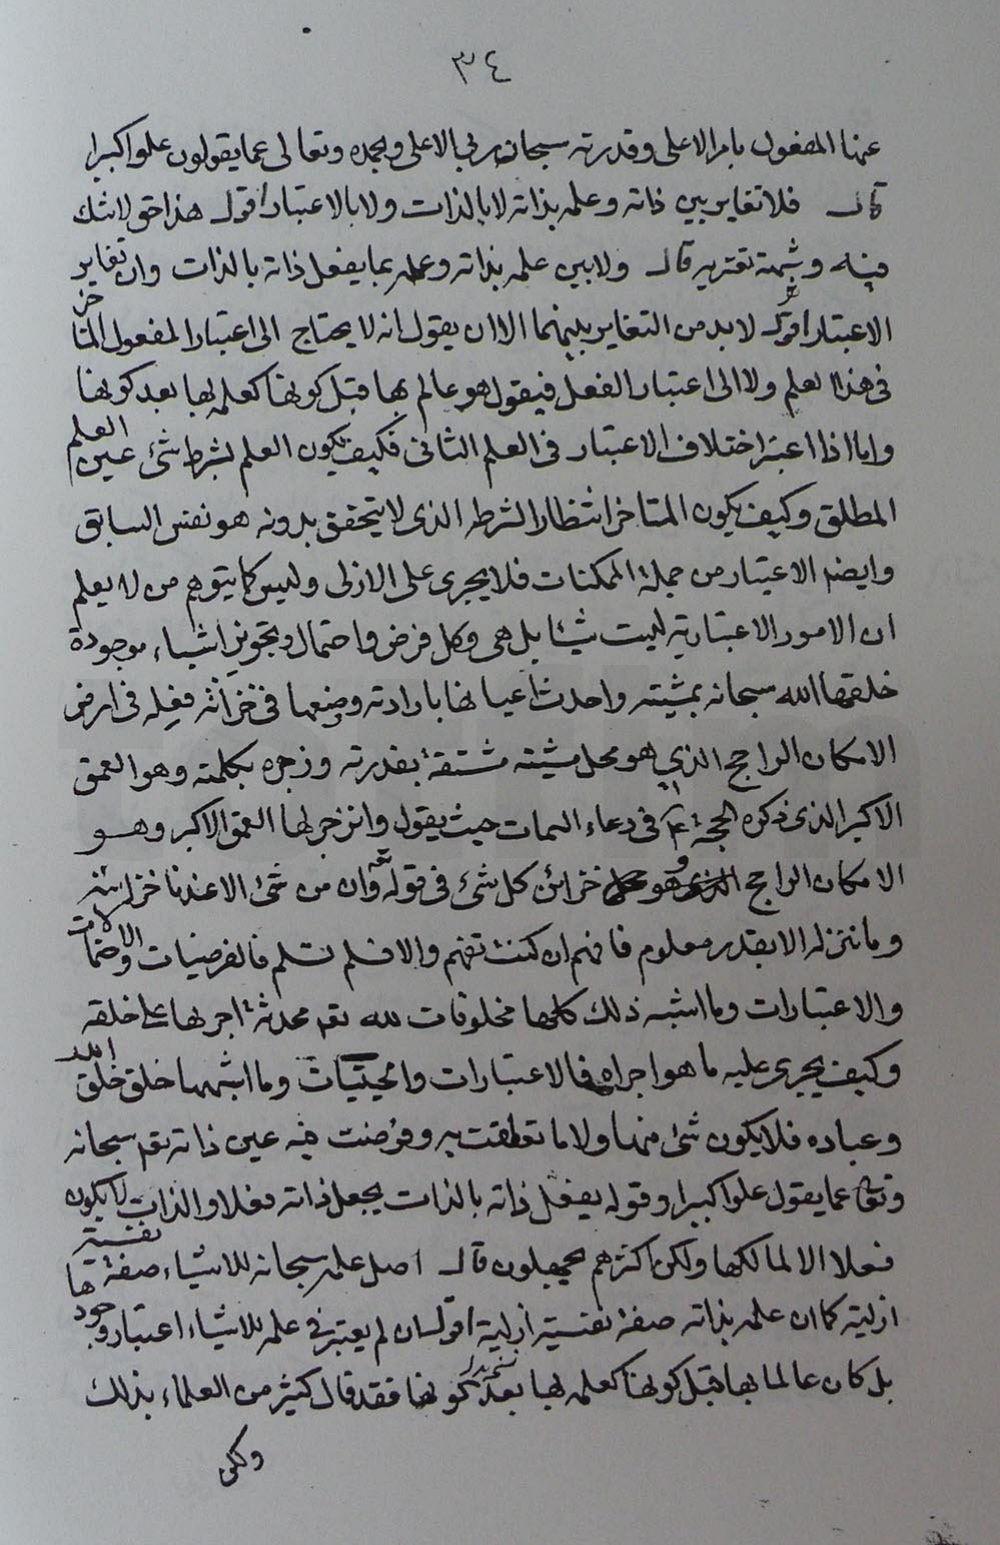 ٣٤
عنها المفعول بامره الاعلى وقدرته سبحان ربي الاعلى وبحمده وتعالى عما يقولون علوا كبيرا
قال فلا تغاير بين ذاته وعلمه بذاته لا بالذات ولا بالاعتبار اقول هذا حق لا شك
فيه وشبهة تعتريه قال ولا بين علمه بذاته وعلمه بما يفعل ذاته بالذات وان تغاير
الاعتبار اقول لا بد من التغاير بينهما الا ان يقول انه لا يحتاج الى اعتبار المفعول المتاخر
في هذا العلم ولا الى اعتبار الفعل فيقول هو عالم بها قبل كونها كعلمه بها بعد كونها
واما اذا اعتبر اختلاف الاعتبار في العلم الثاني فكيف يكون العلم بشرط شئ عين العلم
المطلق وكيف يكون المتاخر انتظار الشرطه الذي لا يتحقق بدونه هو نفس السابق
وايضا الاعتبار من جملة الممكنات فلا يجري على الازلي وليس كما يتوهم من لا يعلم
ان الامور الاعتبارية ليست شيئا بل هي وكل فرض واحتمال وتجويز اشياء موجودة
خلقها الله سبحانه بمشيته واحدث اعيانها بارادته وضعها في خزائنه فعله في ارض
الامكان الراجح الذي هو محل مشيته مشتقة بقدرته وزجره بكلمته وهو العمق
الاكبر الذي ذكره الحجة ع في دعاء السمات حيث يقول وانزجر لها العمق الاكبر وهو
الامكان الراجح وهو خزائن كل شئ في قوله تع وان من شئ الا عندنا خزائنه
وما ننزله الا بقدر معلوم فافهم ان كنت تفهم والا فسلم تسلم فالفرضيات والاحتمالات
والاعتبارات وما اشبه ذلك كلها مخلوقات لله تعم محدثة اجريها على خلقه
وكيف يجري عليه ما هو اجراه فالاعتبارات والحيثيات وما اشبهها خلق خلق الله
وعباده فلا يكون شئ منها ولا ما تعلقت به وفرضت فيه عين ذاته تعم سبحانه
وتعالى عما يقول علوا كبيرا وقوله يفعل ذاته بالذات يجعل ذاته فعلا والذات لا يكون
فعلا الا لمالكها ولكن اكثرهم يجهلون قال اصل علمه سبحانه للاشياء صفة نفسية
ازلية كما ان علمه بذاته صفة نفسية ازلية اقول ان لم يعتبر في علمه للاشياء اعتبار وجودها
بل كان عالما بها قبل كونها كعلمه بها بعد كونها فقد قال كثير من العلماء بذلك
ولكن